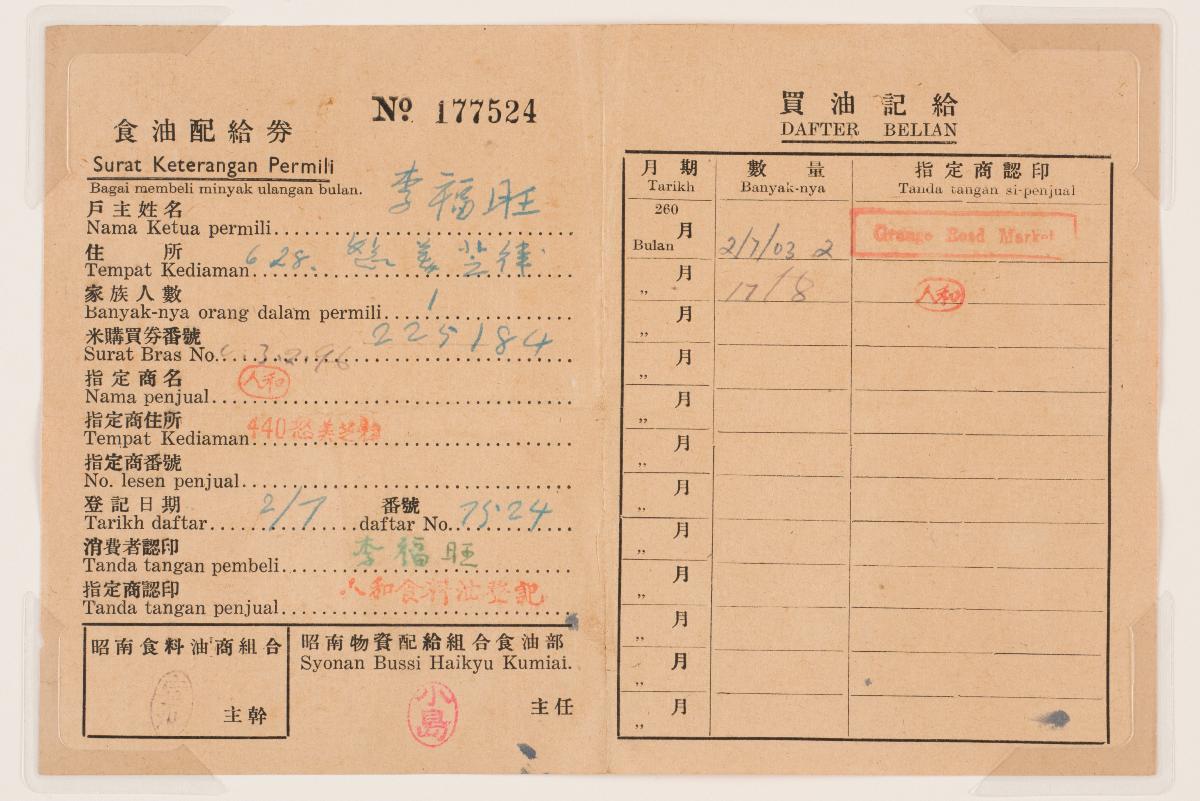 No 177524
食油配給券
Surat Keterangan Permili
Bagai membeli minyak ulangan bulan.
戶主姓名 李福旺
Nama Ketua permili
住所 628.
Tempat Kediaman 美芝律
家族人數 1
Banyak-nya orang dalam permili
米購買券番號 225184
Surat Bras No.
指定商名 人和
Nama penjual
指定商住所
Tempat Kediaman 440 美芝
指定商番號
No. lesen penjual
登記日期 2/7 番號 7524
Tarikh daftar daftar No.
消費者認印 李福旺
Tanda tangan pembeli
指定商認印 人和食料油登記
Tanda tangan penjual
昭南食料油商組合
主幹
昭南物資配給組合食油部
Syonan Bussi Haikyu Kumiai.
小島
主任
買油記給
DAFTER BELIAN
月期 數量 指定商認印
Tarikh Banyak-nya Tanda tangan si-penjual
260
月
Bulan 2/7/03 2 Grange Road Market
月 17/8 人和
„
月
„
月
„
月
„
月
„
月
„
月
„
月
„
月
„
月
„
月
„